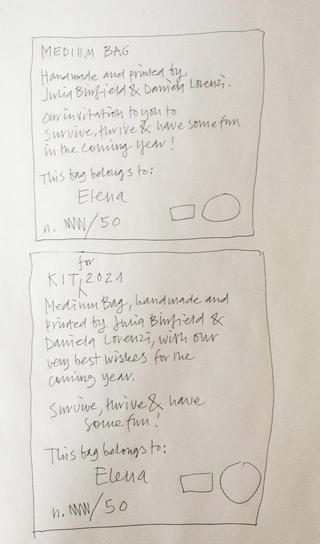 MEDIUM BAG
Handmade and printed by
Julia Binfield & Daniela Lorenzi.
Our invitation to you to
survive, thrive & have some fun
in the coming year!
This bag belongs to:
Elena
n. NN/50
KIT for 2021
Medium Bag, handmade and
printed by Julia Binfield &
Daniela Lorenzi, with our
very best wishes for the
coming year.
Survive, thrive & have
some fun!
This bag belongs to:
Elena
n. NN/50